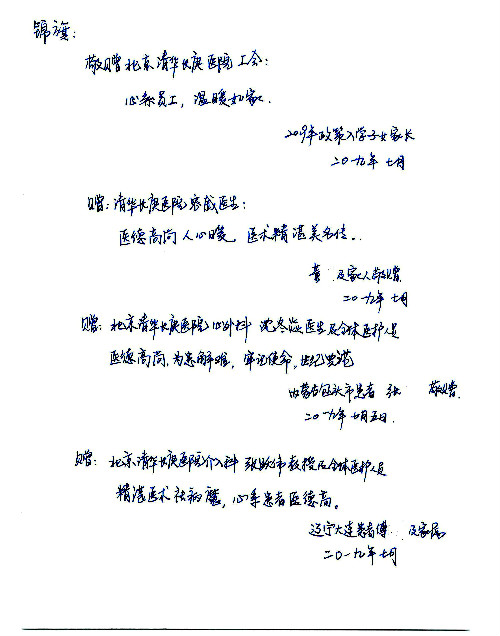 锦旗:
敬赠北京清华长庚医院工会:
心系员工, 温暖如家.
2019年政策入学子女家长
二〇一九年 七月
赠: 清华长庚医院 医生:
医德高尚人心暖, 医术精湛美名传.
董 及家人敬赠
二〇一九年七月
赠: 北京清华长庚医院心外科 沈冬焱医生及全体医护人员
医德高尚, 为患解难, 牢记使命,
内蒙古包头市患者 张 敬赠
二〇一九年七月五日.
赠: 北京清华长庚医院介入科 张跃伟教授及全体医护人员
精湛医术祛病魔, 心系患者医德高。
辽宁大连患者傅 及家属
二〇一九年七月